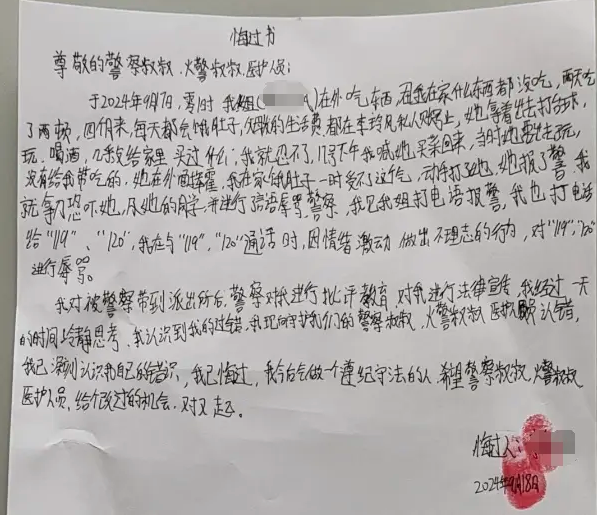 悔过书
尊敬的警察叔叔、火警叔叔、医护人员:
于2024年9月7日,零时 我姐()在外吃东西,且我在家什么东西都没吃,两天吃
了两顿,四个月来,每天都会饿肚子,父亲的生活费都在李玲凡私人账上,她拿着去打台球,
玩、喝酒,几乎没给家里买过什么,我就忍不了,几号下午我喊她买菜回来,当时她要去玩,
没有给我带吃的,她在外面潇霍,我在家饿肚子一时受不了这个气,动手打了她,她报了警,我
就拿刀恐吓她,及她的同学,并进行言语辱骂警察,我见我姐打电话报警,我也打电话
给"119"、"120",我在与"119","120"通话时,因情绪激动,做出不理志的行为,对"119","120"
进行辱骂。
我对被警察带到派出所后,警察对我进行批评教育,对我进行法律宣传,我经过一天
的时间冷静思考,我认识到我的过错,我现向我们的警察叔叔,火警叔叔 医护人员认错,
我已深刻认识我自己的错识,我已悔过,我今后会做一个遵纪守法的人,希望警察叔叔,火警叔叔
医护人员,给个改过的机会,对不起。
悔过人:
2024年9月8日